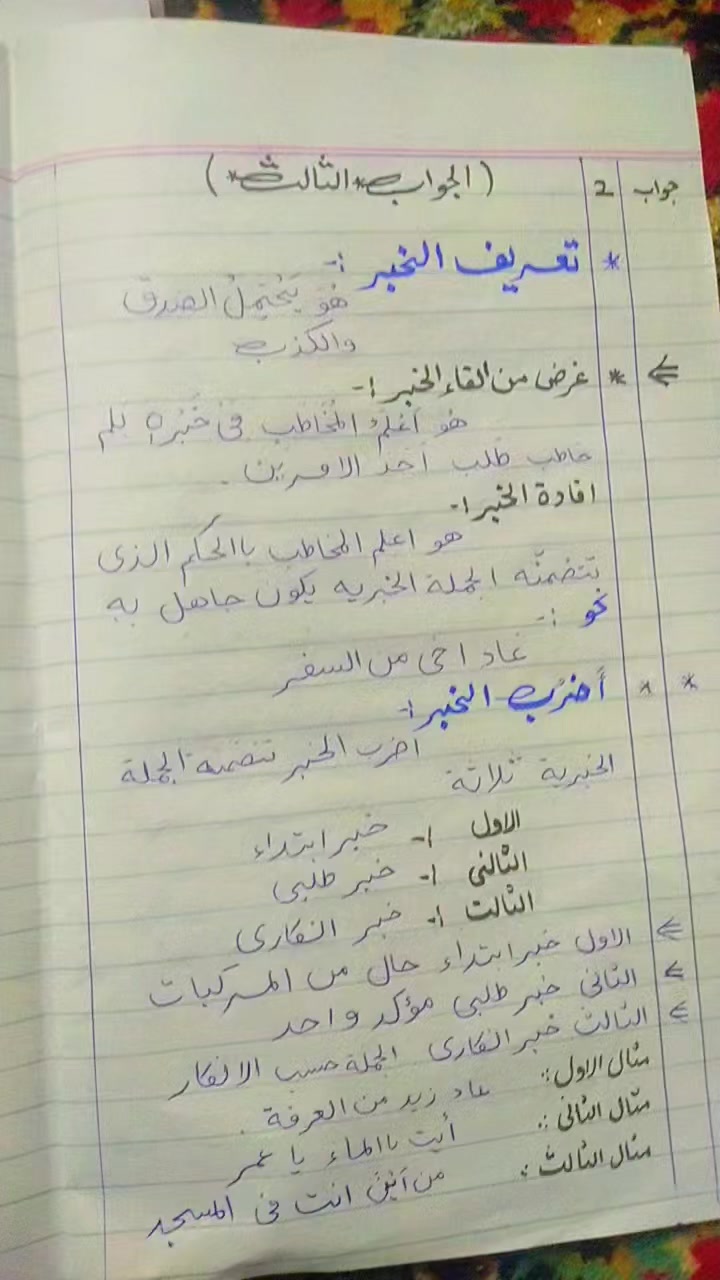 جواب 2 (الجواب * الثالث *)
* تعريف الخبر :-
هُوَ يَحْتَمِلُ الصدق
والكذب
* غرض من القاء الخبر :-
هُو اَعْلَمُ المُخَاطَب فى خَبَرہ لم
طلب اَحَدَ الامرين .
افادة الخبر :-
هو اعلم المخاطب باالحكم الذى
تتضمنّه الجملة الخبريه يكون جاهل به
نحو :-
عاد اخى من السفر
* * أَضرُب الخبر :-
اضرب الخبر تتضمه الجملة
الخبرية ثلاثة
الاول :- خبر ابتداء
الثانى :- خبر طلبى
الثالث :- خبر انكارى
الاول خبر ابتداء حال من المركبات
الثانى خبر طلبى مؤكد واحد
الثالث خبر انكارى الجملة حسب الانكار
مثال الاول :: عاد زيد من الغرفة .
مثال الثانى :: أيت باالماء يا عمر
مثال الثالث :: من اَيْنَ انت فى المسجد